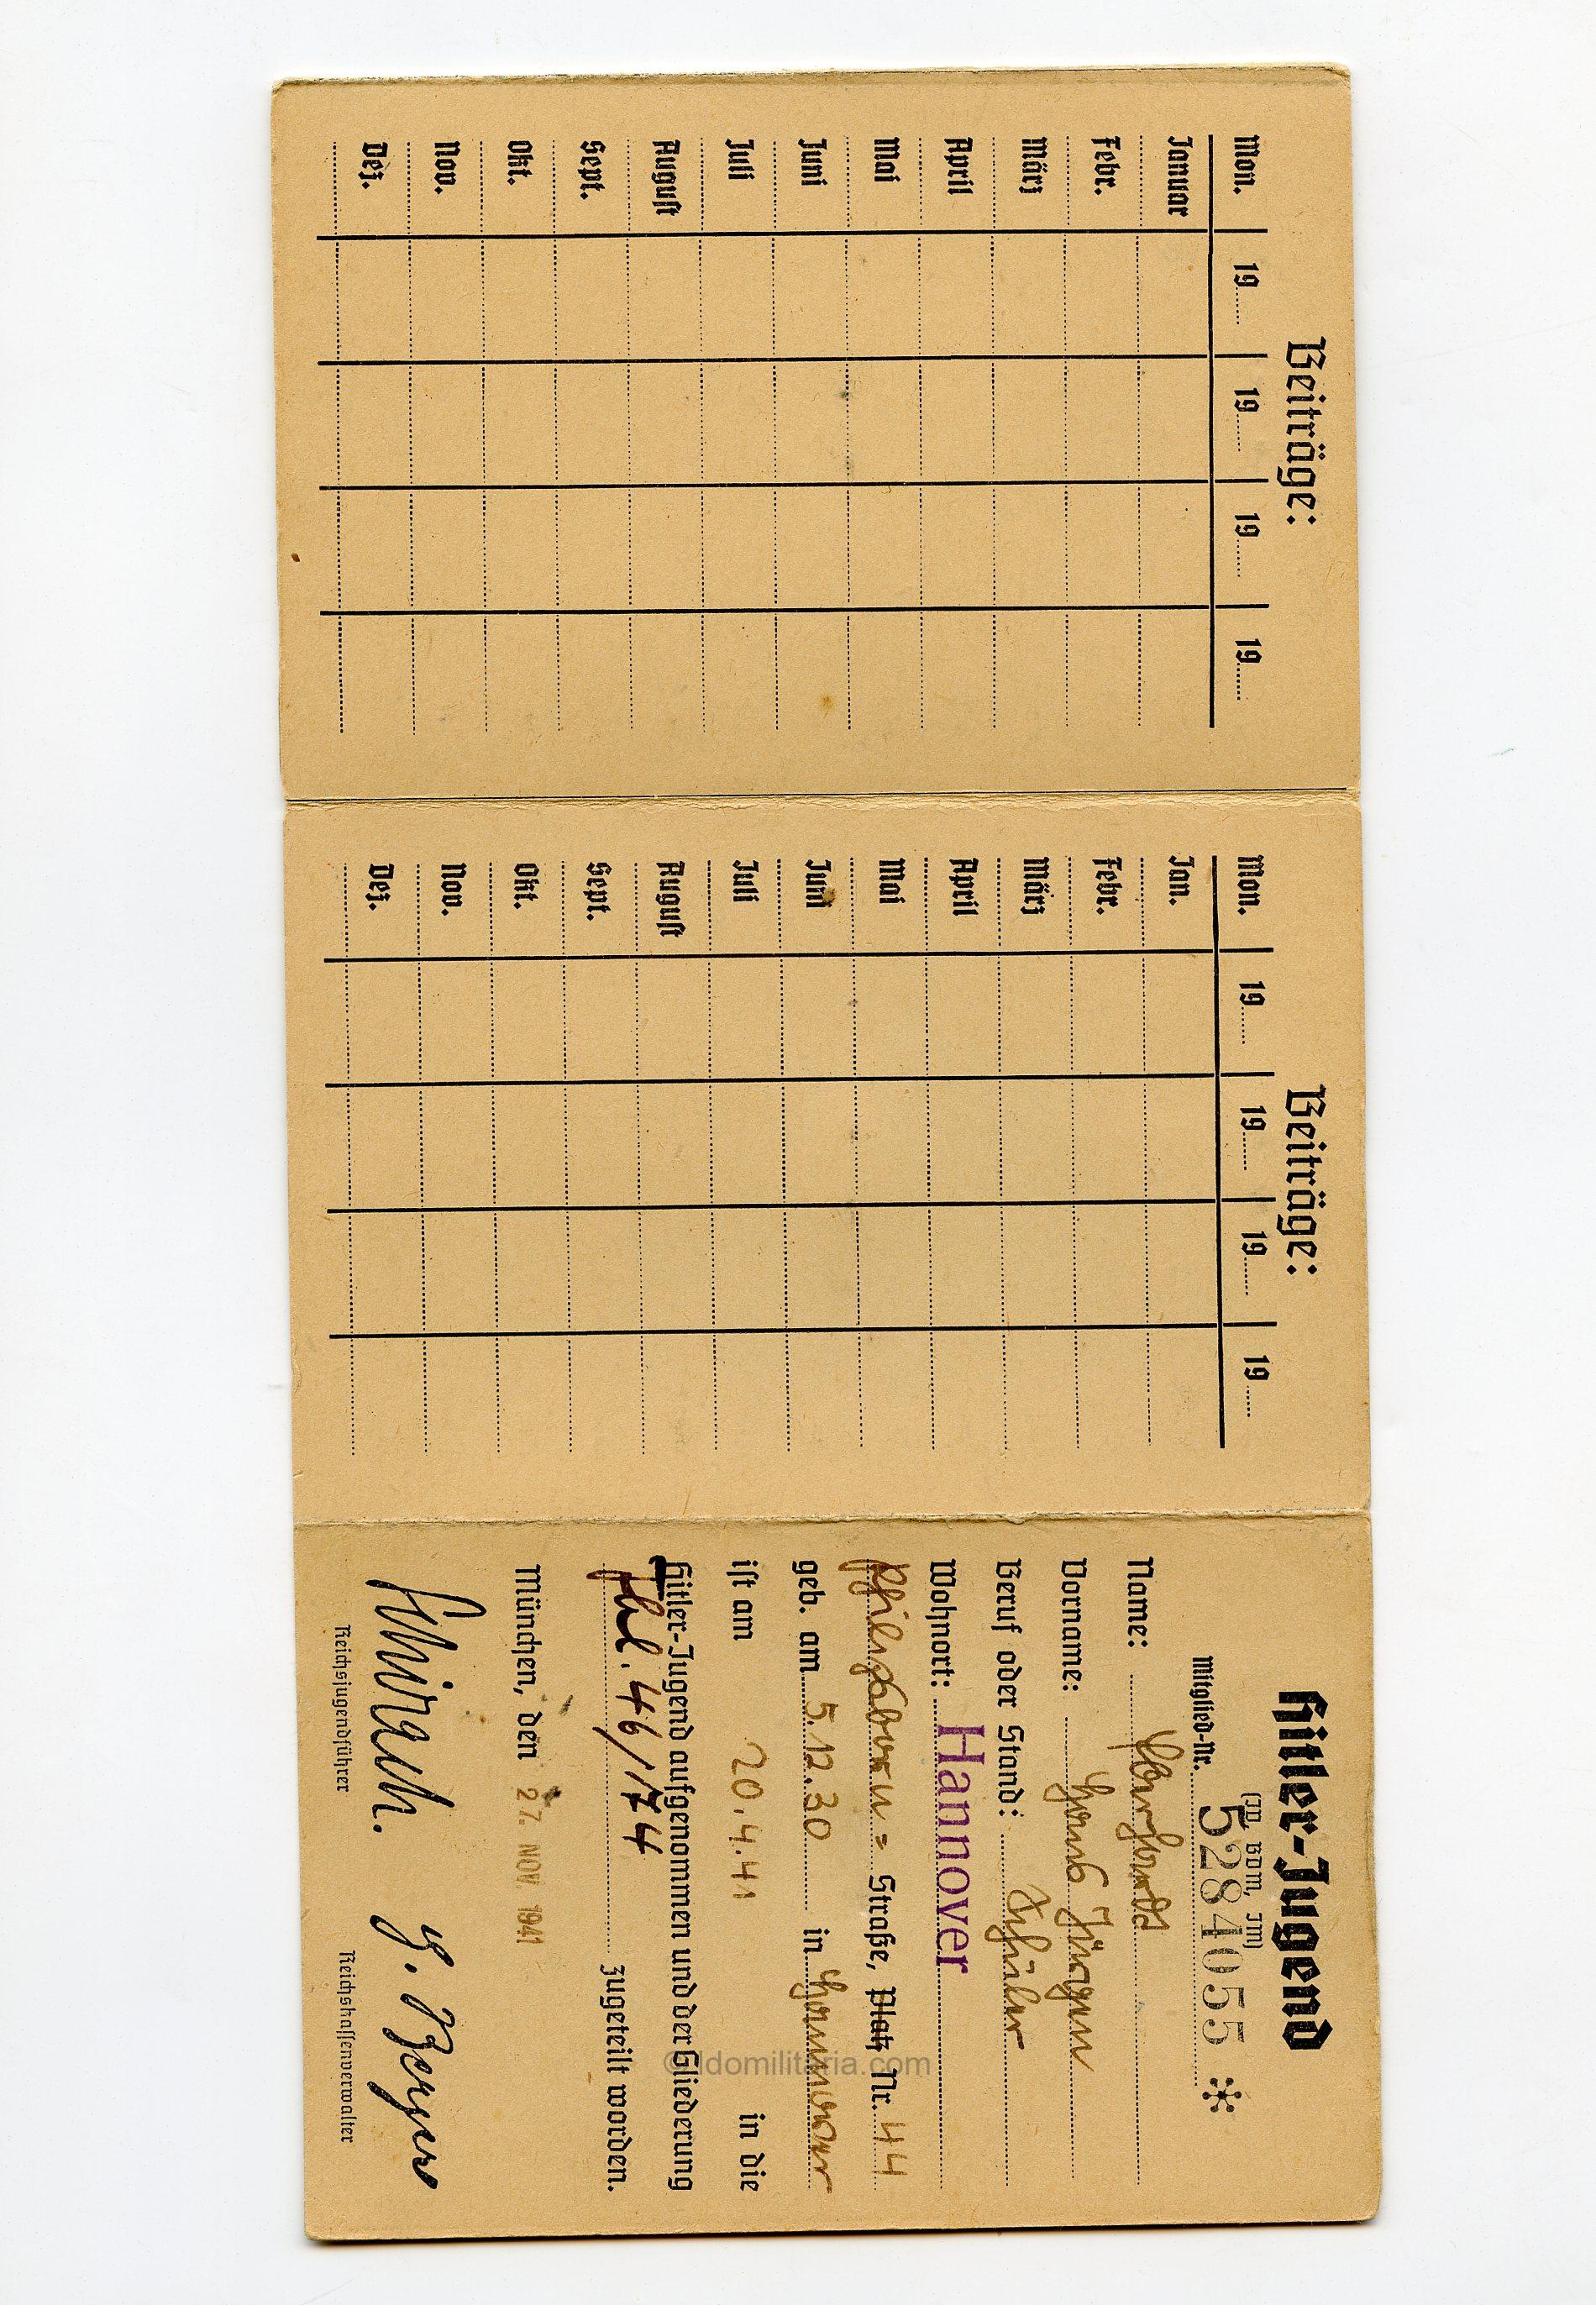 Beiträge:
Mon. 19 19 19 19
Januar
Febr.
März
April
Mai
Juni
Juli
August
Sept.
Okt.
Nov.
Dez.
Beiträge:
Mon. 19 19 19 19
Jan.
Febr.
März
April
Mai
Juni
Juli
August
Sept.
Okt.
Nov.
Dez.
Hitler-Jugend
(JV, BDM, JM)
Mitglied-Nr. 5284055 *
Name:
Vorname: Hans Jürgen
Beruf oder Stand: Schüler
Wohnort: Hannover
Straße, Platz Nr. 44
geb. am 5.12.30 in Hannover
ist am 20.4.41 in die
Hitler-Jugend aufgenommen und der Gliederung
46/174 zugeteilt worden.
München, den 27. NOV 1941
Schirach. G. Berger
Reichsjugendführer Reichskassenverwalter
ldomilitaria.com